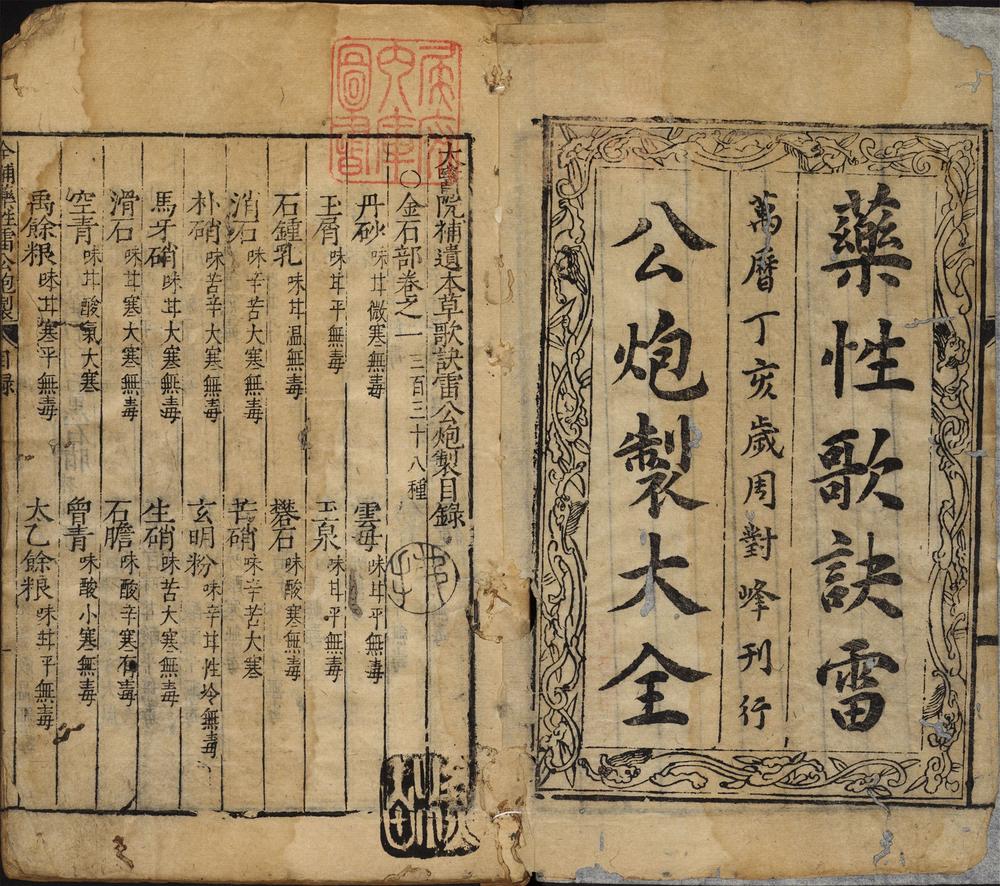 藥性歌訣雷
萬曆丁亥歲周對峰刊行
公炮製大全
太醫院補遺本草歌訣雷公炮製目錄
○金石部卷之一 三百三十八種
丹砂 味甘微寒無毒 雲母 味甘平無毒
玉屑 味甘平無毒 玉泉 味甘平無毒
石鍾乳 味甘温無毒 礬石 味酸寒無毒
消石 味辛苦大寒無毒 芒硝 味辛苦大寒
朴硝 味苦辛大寒無毒 玄明粉 味辛甘性冷無毒
馬牙硝 味甘大寒無毒 生硝 味苦大寒無毒
滑石 味甘寒大寒無毒 石膽 味酸辛寒有毒
空青 味甘酸氣大寒 曾青 味酸小寒無毒
禹餘粮 味甘寒平無毒 太乙餘粮 味甘平無毒
補藥性雷公炮製 目錄